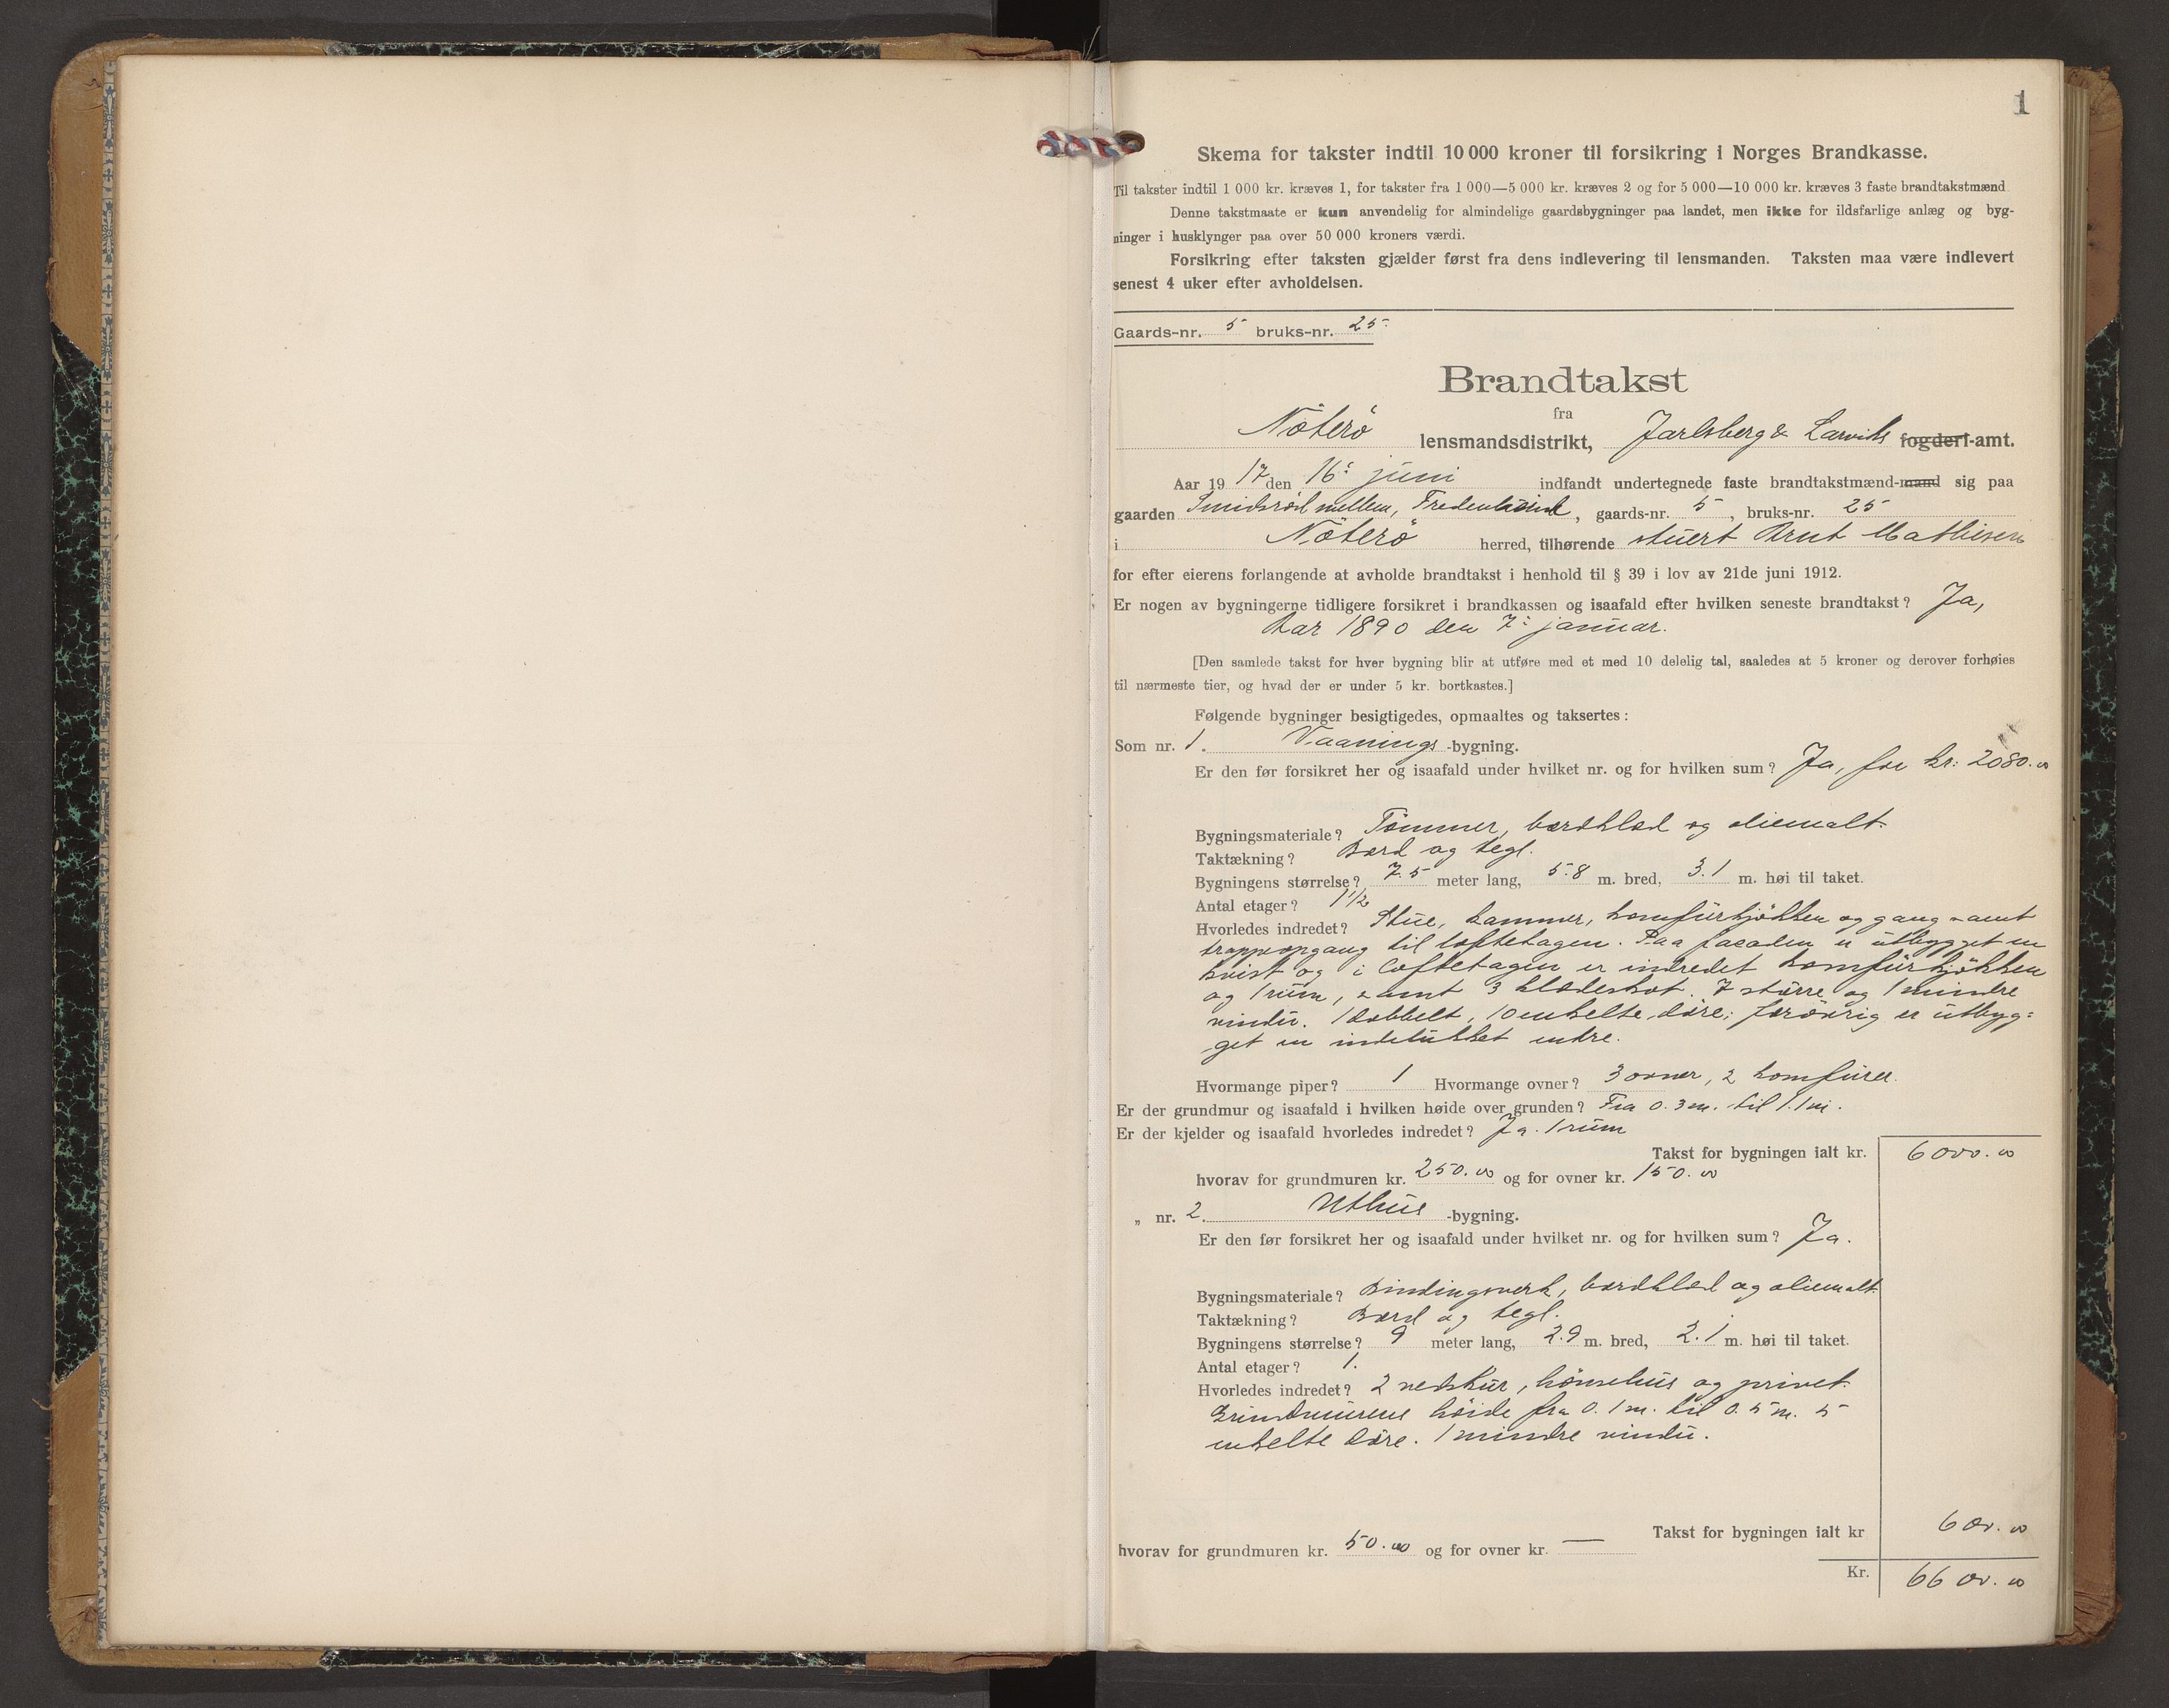 1
Skema for takster indtil 10 000 kroner til forsikring i Norges Brandkasse.
Til takster indtil 1 000 kr. kræves 1, for takster fra 1 000—5 000 kr. kræves 2 og for 5 000—10 000 kr. kræves 3 faste brandtakstmænd
Denne takstmaate er kun anvendelig for almindelige gaardsbygninger paa landet, men ikke for ildsfarlige anlæg og byg-
ninger i husklynger paa over 50 000 kroners værdi.
Forsikring efter taksten gjælder først fra dens indlevering til lensmanden. Taksten maa være indlevert
senest 4 uker efter avholdelsen.
Gaards-nr. 5 bruks-nr. 25
Brandtakst
fra
Nöterö lensmandsdistrikt, Jarlsberg & Larviks fogderi-amt.
Aar 1917 den 16: juni indfandt undertegnede faste brandtakstmænd-mand sig paa
gaarden Smidsröd mellem, Fredenlund, gaards-nr. 5, bruks-nr. 25
i Nöterö herred, tilhørende stuert Arnt Mathiesen
for efter eierens forlangende at avholde brandtakst i henhold til § 39 i lov av 21de juni 1912.
Er nogen av bygningerne tidligere forsikret i brandkassen og isaafald efter hvilken seneste brandtakst? Ja,
Aar 1890 den 7: januar.
[Den samlede takst for hver bygning blir at utføre med et med 10 delelig tal, saaledes at 5 kroner og derover forhøies
til nærmeste tier, og hvad der er under 5 kr. bortkastes.]
Følgende bygninger besigtigedes, opmaaltes og taksertes:
Som nr. 1. Vaanings-bygning.
Er den før forsikret her og isaafald under hvilket nr. og for hvilken sum? Ja, for kr: 2080.00
Bygningsmateriale? Tömmer, bordklæd og oliemalt.
Taktækning? Bord og tegl.
Bygningens størrelse? 7.5 meter lang, 5.8 m. bred, 3.1 m. høi til taket.
Antal etager? 1 1/2
Hvorledes indredet? Stue, kammer, komfürkjökken og gang samt
trappeopgang til loftetagen. Paa facaden er utbygget en
kvist og i loftetagen er indredet komfürkjökken
og 1 rüm, samt 3 klædeskot. 7 större og 1 mindre
vindu. 1 dobbelt, 10 enkelte döre; forövrig er utbyg=
get en indelukket entre.
Hvormange piper? 1 Hvormange ovner? 3 ovner, 2 komfürer.
Er der grundmur og isaafald i hvilken høide over grunden? Fra 0.3 m. til 1.1 m.
Er der kjelder og isaafald hvorledes indredet? Ja. 1 rüm
Takst for bygningen ialt kr. 6000.00
hvorav for grundmuren kr. 250.00 og for ovner kr. 150.00
„ nr. 2. Uthüs-bygning.
Er den før forsikret her og isaafald under hvilket nr. og for hvilken sum? Ja.
Bygningsmateriale? Bindingsverk, bordklæd og oliemalt.
Taktækning? Bord og tegl.
Bygningens størrelse? 9 meter lang, 2.9 m. bred, 2.1 m. høi til taket.
Antal etager? 1.
Hvorledes indredet? 2 vedskür, hönsehüs og privet.
Grundmürens höide fra 0.1 m. til 0.5 m. 5
enkelte döre. 1 mindre vindü.
Takst for bygningen ialt kr 600.00
hvorav for grundmuren kr. 50.00 og for ovner kr. —
Kr. 6600.00